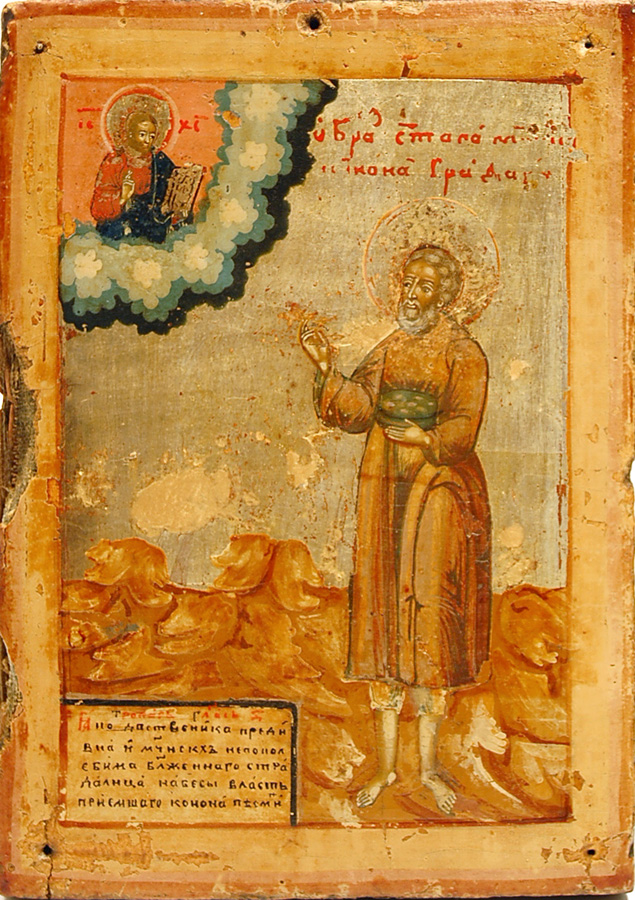 І҃С Х҃С
ѡбра с҃таго м҃
конона Градар
Тропарь Гласъ
Апо дѡбственика преди
вна и м҃ченскхъ непопол
ебима бл҃женнаго стра
дальца на бесы власть
приемшаго конона пѣсм